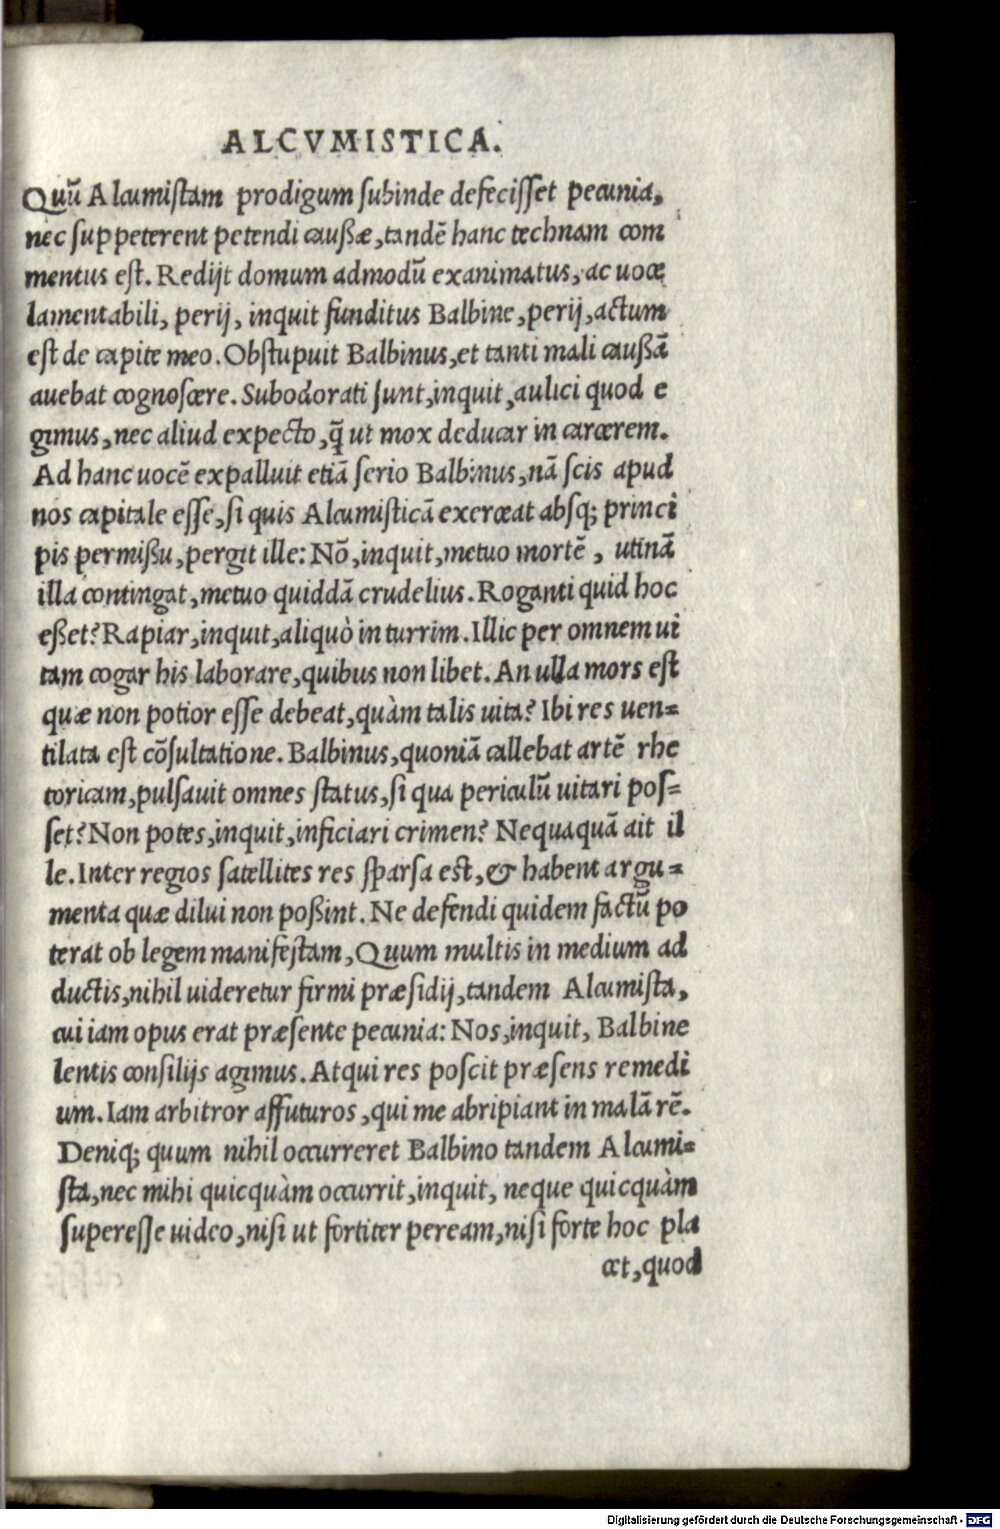 ALCVMISTICA.
Quū Alcumistam prodigum subinde defecisset pecunia,
nec suppeterent petendi caußæ, tandē hanc technam com
mentus est. Redijt domum admodū exanimatus, ac uoce
lamentabili, perij, inquit funditus Balbine, perij, actum
est de capite meo. Obstupuit Balbinus, et tanti mali caußā
auebat cognoscere. Subodorati sunt, inquit, aulici quod e
gimus, nec aliud expecto, q̄ ut mox deducar in carcerem.
Ad hanc uocē expalluit etiā serio Balbinus, nā scis apud
nos capitale esse, si quis Alcumisticā exerceat absq; princi
pis permißu, pergit ille: Nō, inquit, metuo mortē, utinā
illa contingat, metuo quiddā crudelius. Roganti quid hoc
eßet? Rapiar, inquit, aliquò in turrim. Illic per omnem ui
tam cogar his laborare, quibus non libet. An ulla mors est
quæ non potior esse debeat, quàm talis uita? Ibi res uen=
tilata est cōsultatione. Balbinus, quoniā callebat artē rhe
toricam, pulsauit omnes status, si qua periculū uitari pos=
set? Non potes, inquit, inficiari crimen? Nequaquā ait il
le. Inter regios satellites res sparsa est, & habent argu=
menta quæ dilui non poßint. Ne defendi quidem factū po
terat ob legem manifestam, Quum multis in medium ad
ductis, nihil uideretur firmi præsidij, tandem Alcumista,
cui iam opus erat præsente pecunia: Nos, inquit, Balbine
lentis consilijs agimus. Atqui res poscit præsens remedi
um. Iam arbitror affuturos, qui me abripiant in malā rē.
Deniq; quum nihil occurreret Balbino tandem Alcumi=
sta, nec mihi quicquàm occurrit, inquit, neque quicquàm
superesse uideo, nisi ut fortiter peream, nisi forte hoc pla
cet, quod
Digitalisierung gefördert durch die Deutsche Forschungsgemeinschaft - DFG